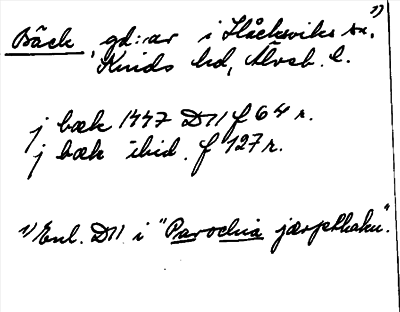 Bäck, gd:ar i Håcksviks sn, 1)
Kinds hd, Älvsb. l.
j bæk 1447 D11 f 64 r.
j bæk ibid. f 127 r.
1) Enl. D11 i "Parochia jærpthaku".